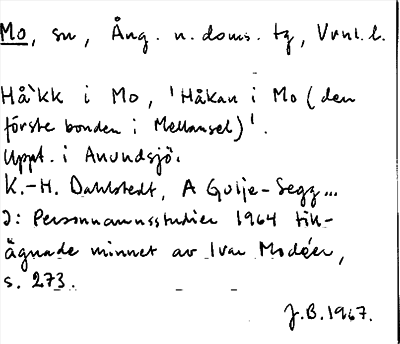 Mo, sn, Ång. n. doms. tg, Vrnl. l.
Hå`kk i Mo, 'Håkan i Mo (den
förste bonden i Mellansel)'.
Uppt. i Anundsjö.
K.-H. Dahlstedt, A Gulje-Segg...
I: Personnamnsstudier 1964 till-
ägnade minnet av Ivar Modéer,
s. 273.
J.B. 1967.